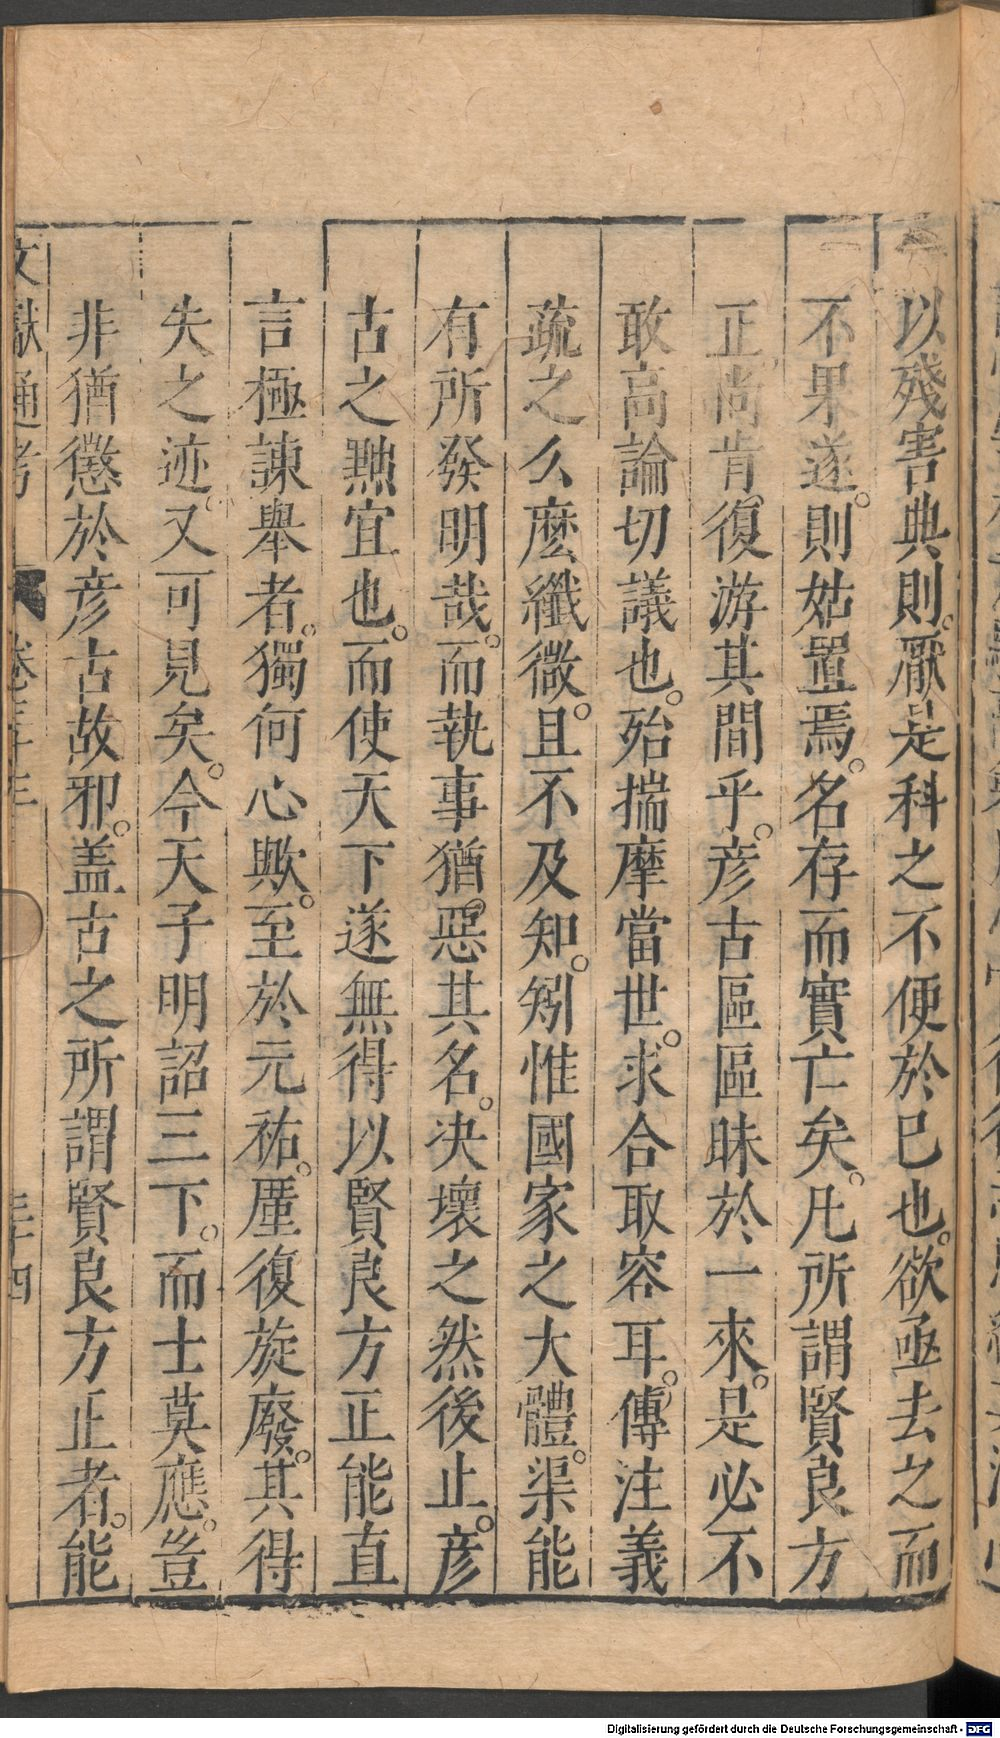 以殘害典則。厭是科之不便於已也。欲亟去之而
不果遂。則姑置焉。名存而實亡矣。凡所謂賢良方
正尚肯。復游其間乎。彦古區區昧於一來。是必不
敢高論切議也。殆揣摩當世。求合取容耳。傳注義
疏之么麽纖微。且不及知。矧惟國家之大體。渠能
有所發明哉。而執事猶。惡其名。决壞之然後止。彦
古之黜宜也。而使天下遂無得以賢良方正能直
言極諫舉者。獨何心歟。至於元祐。厪復旋廢。其得
失之迹。又可見矣。今天子明詔三下。而士莫應。豈
非猶懲於彦古故邪。盖古之所謂賢良方正者。能
文獻通考 卷三十三 三十四
Digitalisierung gefördert durch die Deutsche Forschungsgemeinschaft - DFG